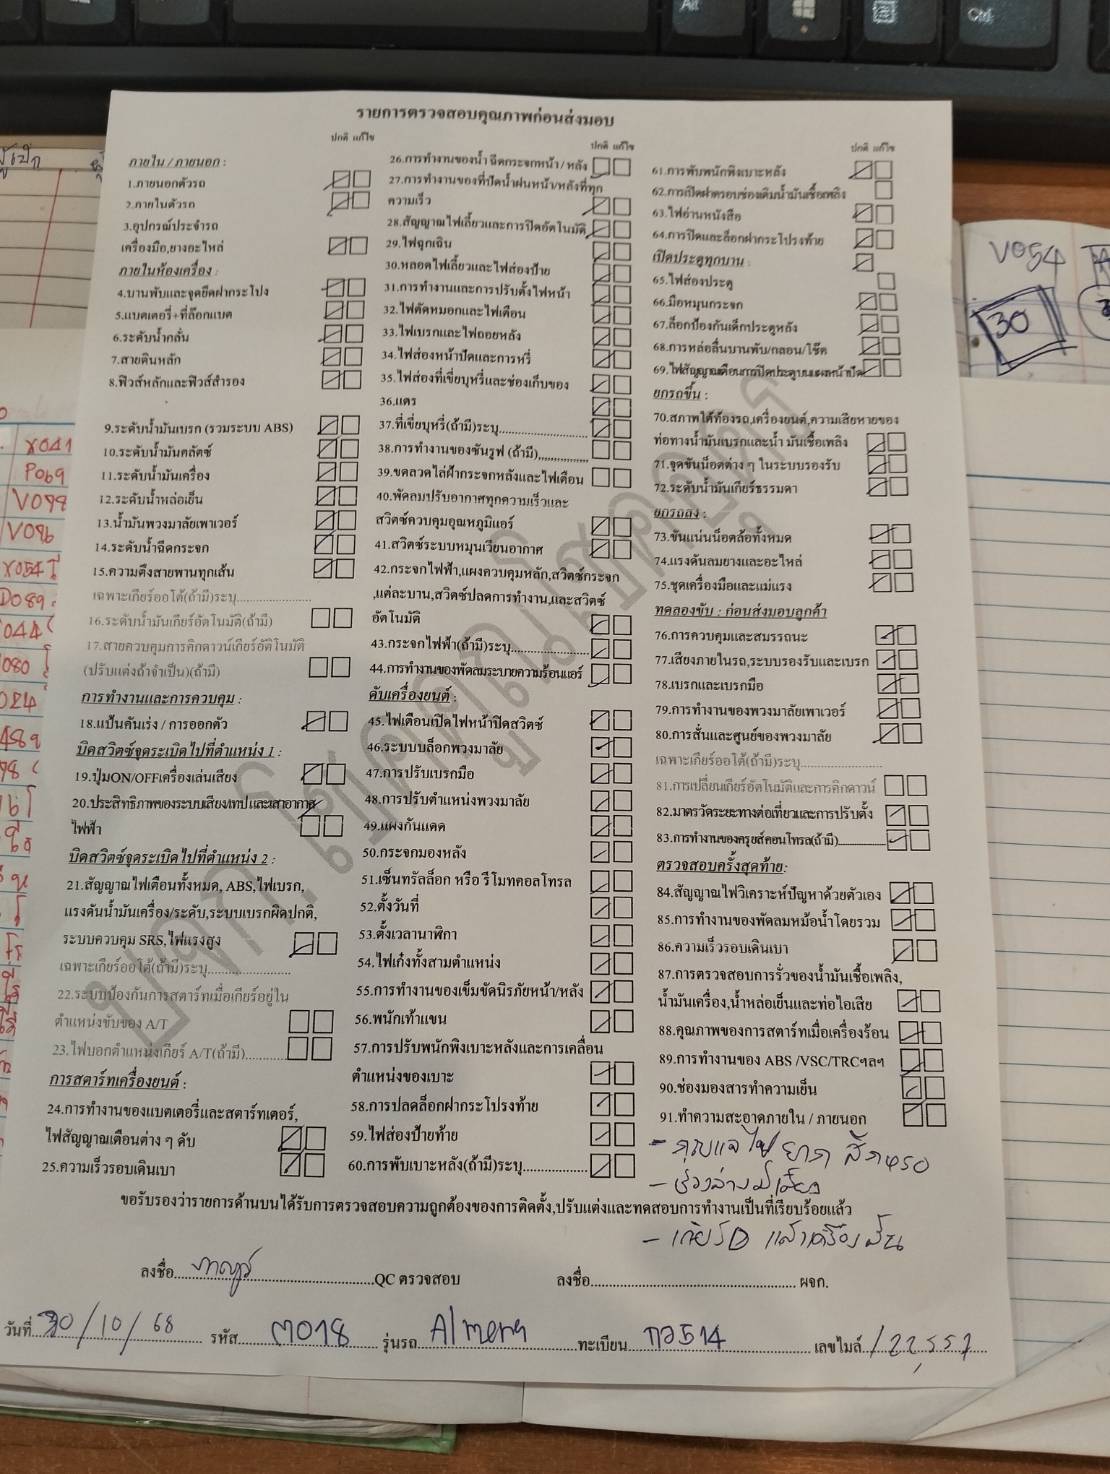 Alt
Ctrl
รายการตรวจสอบคุณภาพก่อนส่งมอบ
ปกติ แก้ไข
ภายใน / ภายนอก :
1.ภายนอกตัวรถ
2.ภายในตัวรถ
3.อุปกรณ์ประจำรถ
เครื่องมือ,ยางอะไหล่
ภายในห้องเครื่อง :
4.บานพับและจุดยึดฝากระโปง
5.แบตเตอรี่+ที่ล๊อกแบต
6.ระดับน้ำกลั่น
7.สายดินหลัก
8.ฟิวส์หลักและฟิวส์สำรอง
9.ระดับน้ำมันเบรก (รวมระบบ ABS)
10.ระดับน้ำมันคลัตซ์
11.ระดับน้ำมันเครื่อง
12.ระดับน้ำหล่อเย็น
13.น้ำมันพวงมาลัยเพาเวอร์
14.ระดับน้ำฉีดกระจก
15.ความตึงสายพานทุกเส้น
เฉพาะเกียร์ออโต้(ถ้ามี)ระบุ....................
16.ระดับน้ำมันเกียร์อัตโนมัติ(ถ้ามี)
17.สายควบคุมการคิกดาวน์เกียร์อัติโนมัติ
(ปรับแต่งถ้าจำเป็น)(ถ้ามี)
การทำงานและการควบคุม :
18.แป้นคันเร่ง / การออกตัว
บิดสวิตซ์จุดระเบิดไปที่ตำแหน่ง 1 :
19.ปุ่มON/OFFเครื่องเล่นเสียง
20.ประสิทธิภาพของระบบเสียง/เทป และเสาอากาศ
ไฟฟ้า
บิดสวิตซ์จุดระเบิดไปที่ตำแหน่ง 2 :
21.สัญญาณไฟเตือนทั้งหมด, ABS,ไฟเบรก,
แรงดันน้ำมันเครื่อง/ระดับ,ระบบเบรกผิดปกติ,
ระบบควบคุม SRS,ไฟแรงสูง
เฉพาะเกียร์ออโต้(ถ้ามี)ระบุ....................
22.ระบบป้องกันการสตาร์ทเมื่อเกียร์อยู่ใน
ตำแหน่งขับของ A/T
23.ไฟบอกตำแหน่งเกียร์ A/T(ถ้ามี)..............
การสตาร์ทเครื่องยนต์ :
24.การทำงานของแบตเตอรี่และสตาร์ทเตอร์,
ไฟสัญญาณเตือนต่าง ๆ ดับ
25.ความเร็วรอบเดินเบา
ปกติ แก้ไข
26.การทำงานของน้ำ ฉีดกระจกหน้า / หลัง
27.การทำงานของที่ปัดน้ำฝนหน้า/หลังที่ทุก
ความเร็ว
28.สัญญาณไฟเลี้ยวและการปิดอัตโนมัติ
29.ไฟฉุกเฉิน
30.หลอดไฟเลี้ยวและไฟส่องป้าย
31.การทำงานและการปรับตั้งไฟหน้า
32.ไฟตัดหมอกและไฟเตือน
33.ไฟเบรกและไฟถอยหลัง
34.ไฟส่องหน้าปัดและการหรี่
35.ไฟส่องที่เขี่ยบุหรี่และช่องเก็บของ
36.แตร
37.ที่เขี่ยบุหรี่(ถ้ามี)ระบุ....................
38.การทำงานของซันรูฟ (ถ้ามี)..............
39.ขดลวดไล่ฝ้ากระจกหลังและไฟเตือน
40.พัดลมปรับอากาศทุกความเร็วและ
สวิตซ์ควบคุมอุณหภูมิแอร์
41.สวิตซ์ระบบหมุนเวียนอากาศ
42.กระจกไฟฟ้า,แผงควบคุมหลัก,สวิตซ์กระจก
,แต่ละบาน,สวิตซ์ปลดการทำงาน,และสวิตซ์
อัตโนมัติ
43.กระจกไฟฟ้า(ถ้ามี)ระบุ....................
44.การทำงานของพัดลมระบายความร้อนแอร์
ดับเครื่องยนต์ :
45.ไฟเตือนเปิดไฟหน้าปิดสวิตซ์
46.ระบบบล็อกพวงมาลัย
47.การปรับเบรกมือ
48.การปรับตำแหน่งพวงมาลัย
49.แผงกันแดด
50.กระจกมองหลัง
51.เซ็นทรัลล็อก หรือ รีโมทคอลโทรล
52.ตั้งวันที่
53.ตั้งเวลานาฬิกา
54.ไฟเก๋งทั้งสามตำแหน่ง
55.การทำงานของเข็มขัดนิรภัยหน้า/หลัง
56.พนักเท้าแขน
57.การปรับพนักพิงเบาะหลังและการเคลื่อน
ตำแหน่งของเบาะ
58.การปลดล็อกฝากระโปรงท้าย
59.ไฟส่องป้ายท้าย
60.การพับเบาะหลัง(ถ้ามี)ระบุ..................
ปกติ แก้ไข
61.การพับพนักพิงเบาะหลัง
62.การเปิดฝาครอบช่องเติมน้ำมันเชื้อเพลิง
63.ไฟอ่านหนังสือ
64.การปิดและล็อกฝากระโปรงท้าย
เปิดประตูทุกบาน :
65.ไฟส่องประตู
66.มือหมุนกระจก
67.ล็อกป้องกันเด็กประตูหลัง
68.การหล่อลื่นบานพับ/กลอน/โช๊ค
69.ไฟสัญญาณเตือนการปิดประตูบนแผงหน้าปัด
ยกรถขึ้น :
70.สภาพใต้ท้องรถ,เครื่องยนต์,ความเสียหายของ
ท่อทางน้ำมันเบรกและน้ำ มันเชื้อเพลิง
71.จุดขันน็อตต่าง ๆ ในระบบรองรับ
72.ระดับน้ำมันเกียร์ธรรมดา
ยกรถลง :
73.ขันแน่นน็อตล้อทั้งหมด
74.แรงดันลมยางและอะไหล่
75.ชุดเครื่องมือและแม่แรง
ทดลองขับ : ก่อนส่งมอบลูกค้า
76.การควบคุมและสมรรถนะ
77.เสียงภายในรถ,ระบบรองรับและเบรก
78.เบรกและเบรกมือ
79.การทำงานของพวงมาลัยเพาเวอร์
80.การสั่นและศูนย์ของพวงมาลัย
เฉพาะเกียร์ออโต้(ถ้ามี)ระบุ....................
81.การเปลี่ยนเกียร์อัตโนมัติและการคิกดาวน์
82.มาตรวัดระยะทางต่อเที่ยวและการปรับตั้ง
83.การทำงานของครุยส์คอนโทรล(ถ้ามี)..............
ตรวจสอบครั้งสุดท้าย:
84.สัญญาณไฟวิเคราะห์ปัญหาด้วยตัวเอง
85.การทำงานของพัดลมหม้อน้ำโดยรวม
86.ความเร็วรอบเดินเบา
87.การตรวจสอบการรั่วของน้ำมันเชื้อเพลิง,
น้ำมันเครื่อง,น้ำหล่อเย็นและท่อไอเสีย
88.คุณภาพของการสตาร์ทเมื่อเครื่องร้อน
89.การทำงานของ ABS /VSC/TRCฯลฯ
90.ช่องมองสารทำความเย็น
91.ทำความสะอาดภายใน / ภายนอก
- กุญแจไข ยาก สึกหรอ
- ช่วงล่างมีเสียง
- เกียร์ D แล้วเครื่องสั่น
ขอรับรองว่ารายการด้านบนได้รับการตรวจสอบความถูกต้องของการติดตั้ง,ปรับแต่งและทดสอบการทำงานเป็นที่เรียบร้อยแล้ว
ลงชื่อ....................QC ตรวจสอบ
ลงชื่อ....................ผจก.
วันที่ 30/10/68 รหัส ต018 รุ่นรถ Almera ทะเบียน กอ514 เลขไมล์ 122,557
V054
30
X041
P069
V099
V096
X054
D089